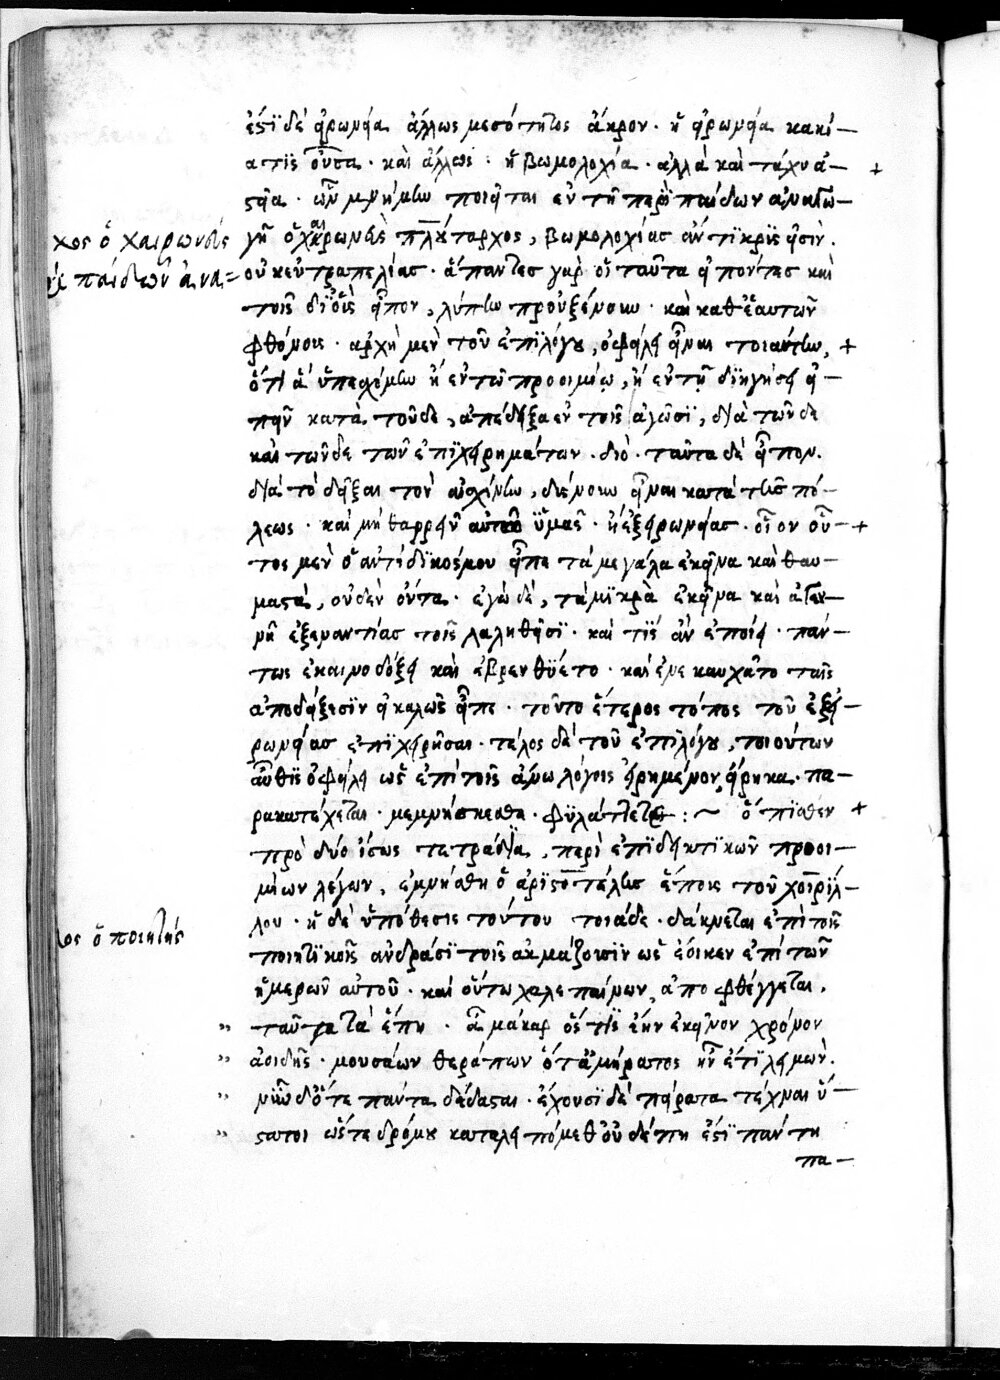 ἐστὶ δὲ εἰρωνεία ἄλλως μεσότητος ἄκρον· ἡ εἰρωνεία κακί-
α τὶς οὖσα· καὶ ἄλλως· ἡ βωμολοχία· ἀλλὰ καὶ τάχυἀ- +
στεῖα· ὧν μνήμην ποιεῖται ἐν τῆ περὶ παίδων ἀναγω-
χος ὁ χαιρωνεὺς
γῆ ὁ χαιρωνεὺς πλούταρχος, βωμολοχίας ἀντικρὶς εἰσὶν.
παίδων ἀνα=
οὐκ εὐτραπελίας· ἅπαντες γὰρ οἱ ταῦτα εἰπόντες καὶ
τοῖς δι' οὓς εἶπον, λύπην προὐξένουν· καὶ καθ' ἑαυτῶν
φθόνους· ἀρχὴ μὲν τοῦ ἐπιλόγου, ὀφείλει εἶναι τοιαύτην, +
ὅτι ἃ ὑπεσχόμην ἢ ἐν τῶ προοιμίω, ἢ ἐν τῆ διηγήσει εἰ-
πεῖν κατὰ τοῦδε, ἀπέδειξα ἐν τοῖς ἀγῶσι, διὰ τῶνδε
καὶ τῶνδε τῶν ἐπιχειρημάτων· διὸ· ταῦτα δὲ εἶπον.
διὰ τὸ δεῖξαι τὸν αἰσχίνην, δύνουν εἶναι κατὰ τῆς πό-
λεως· καὶ μὴ θαρρεῖν αὐτῶ ὑμᾶς· ἢ ἐξ εἰρωνείας· οἷον οὗ- +
τος μὲν ὁ ἀντίδικός μου εἶπε τὰ μεγάλα ἐκεῖνα καὶ θαυ-
μαστὰ, οὐδὲν ὄντα· ἐγὼ δὲ, τὰ μικρὰ ἐκεῖνα καὶ ἀγεν-
νῆ ἐξεναντίας τοῖς λαληθεῖσι· καὶ τίς ἂν ἐποίει· πάν-
τως ἐκαινοδόξει καὶ ἐβρενθύετο· καὶ ἐνεκαυχᾶτο ταῖς
ἀποδείξεσιν εἰ καλῶς εἶπε· τοῦτο ἕτερος τόπος τοῦ ἐξ εἰ-
ρωνείας ἐπιχειρῆσαι· τέλος δὲ τοῦ ἐπιλόγου, τοιοῦτων
αὖθις ὀφείλει ὡς ἐπὶ τοῖς ἄνω λόγοις εἰρημένον, εἴρηκα· πα-
ρακατέχεται· μεμνήσκεσθε· φυλάττετε : ~ ὄπισθεν +
πρὸ δύο ἴσως τετράδια, περὶ ἐπιδεικτικῶν προοι-
μίων λέγων, ἐμνήσθη ὁ ἀριστοτέλης ἔπους τοῦ χοιρίλ-
λου· ἡ δὲ ὑπόθεσις τούτου τοιάδε· δάκνεται ἐπὶ τοῖς
ος ὁ ποιητής
ποιητικοῖς ἀνδράσι τοῖς ἀκμάζουσιν ὡς ἔοικεν ἐπὶ τῶν
ἡμερῶν αὐτοῦ· καὶ οὕτω χαλεπαίνων, ἀποφθέγγεται,
" ταῦτα τὰ ἔπη· ἆ μάκαρ ὅστις ἔην ἐκεῖνον χρόνον
" ἀοιδῆς· μουσάων θεράπων ὅτ' ἀμήρατος ἦν ἔτι λειμών.
" νῦν δ' ὅτε πάντα δέδασται· ἔχουσι δὲ πείρατα τέχναι ὕ-
" στατοι ὥστε δρόμου καταλειπόμεθ' οὐδέ πη ἐστὶ πάντη
πα-